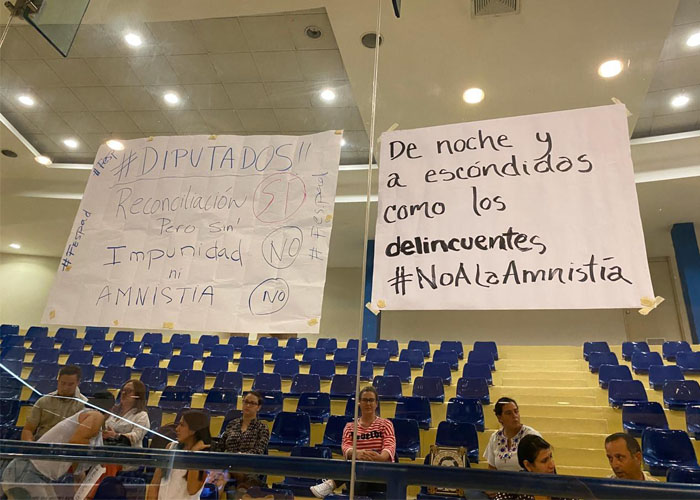 #DIPUTADOS!!
Reconciliación SI
Pero Sin
Impunidad NO
ni
AMNISTIA NO
#Fespad
#Fespad
De noche y
a escóndidas
como los
delincuentes
#NoALaAmnistía